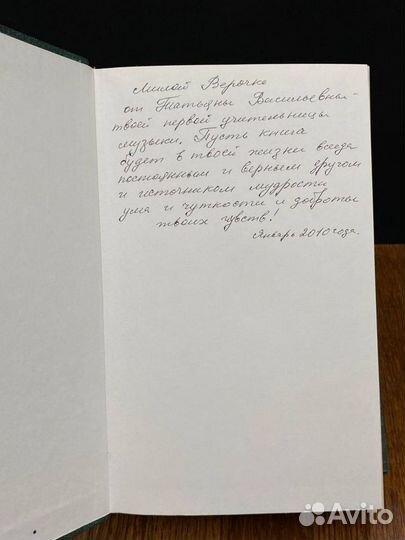 Милой Верочке
от Татьяны Васильевны -
твоей первой учительницы
музыки. Пусть книга
будет в твоей жизни всегда
постоянным и верным другом
и источником мудрости
ума и чуткости и доброты
твоих чувств!
Январь 2010 года.
Avito